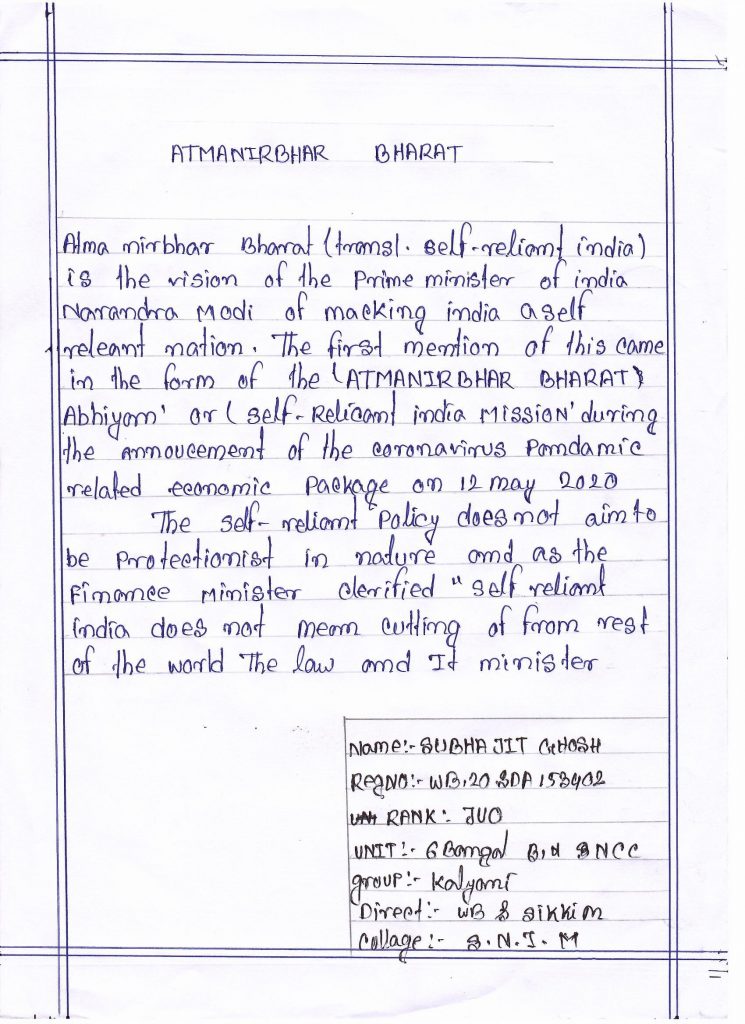 ATMANIRBHAR BHARAT
Atma nirbhar Bharat (transl. self-reliant india)
is the vision of the Prime minister of india
Narandra Modi of macking india aself
releant nation. The first mention of this came
in the form of the (ATMANIRBHAR BHARAT)
Abhiyan' or ( self-Relicant india MISSION' during
the annoucement of the coronavirus Pandamic
related economic Package on 12 may 2020
The self-reliant Policy does not aim to
be Protectionist in nature and as the
Finance Minister clerified " self reliant
india does not mean cutting of from rest
of the world The law and It minister
Name:- SUBHAJIT GHOSH
RegNO:- WB,20 SDA 153402
RANK:- JUO
UNIT:- 6 Bangal B,N NCC
group:- Kalyani
Direct:- WB & Sikkim
Collage:- S.N.I.M